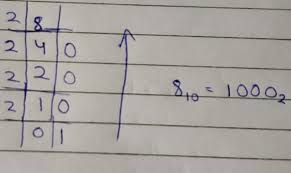 2 8
2 4 0
2 2 0
2 1 0
0 1
8₁₀ = 1000₂